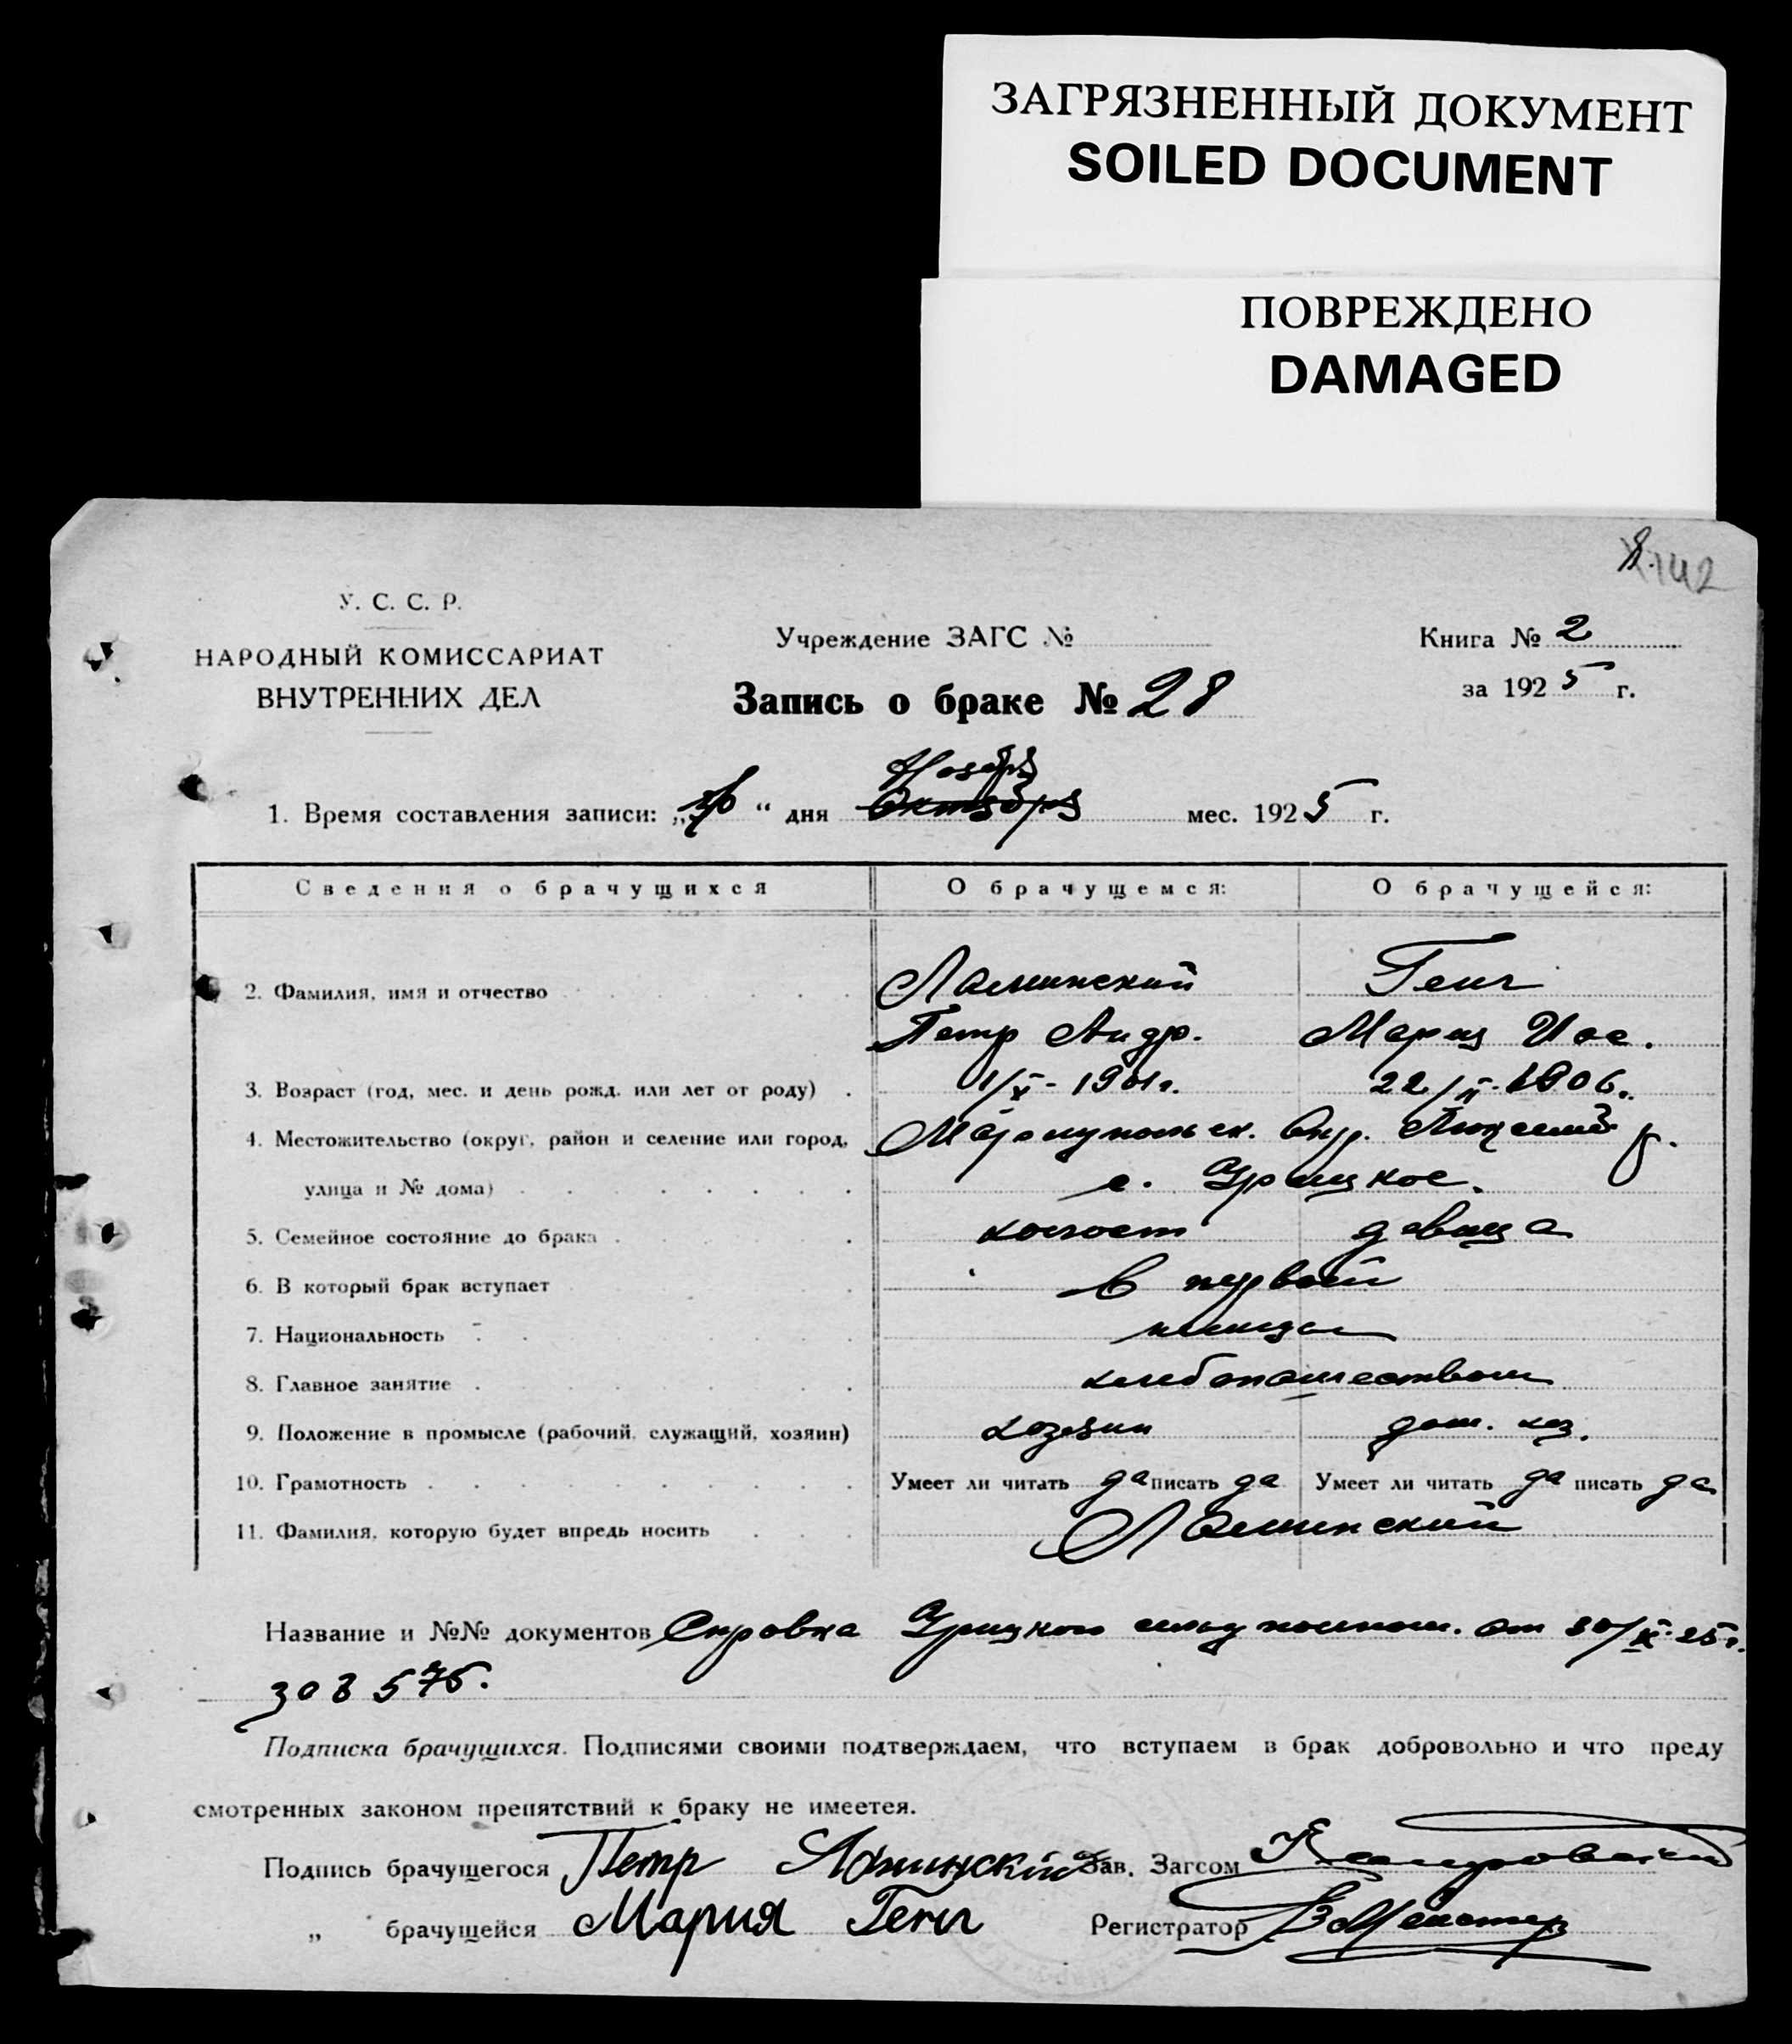 ЗАГРЯЗНЕННЫЙ ДОКУМЕНТ
SOILED DOCUMENT
ПОВРЕЖДЕНО
DAMAGED
142
У. С. С. Р.
НАРОДНЫЙ КОМИССАРИАТ
ВНУТРЕННИХ ДЕЛ
Учреждение ЗАГС №
Запись о браке № 28
Книга № 2
за 1925 г.
Ноября
1. Время составления записи: „ “ дня Октября мес. 1925 г.
Сведения о брачущихся О брачущемся: О брачущейся:
Ляминский Генг
2. Фамилия, имя и отчество
Петр Андр. Мария Иос.
3. Возраст (год, мес. и день рожд. или лет от роду) 1/X - 1901г. 22/II - 1906.
4. Местожительство (округ, район и селение или город, Мариупольск. Окр. р.
улица и № дома) с. Урицкое.
5. Семейное состояние до брака холост девица
6. В который брак вступает в первый
7. Национальность немцы
8. Главное занятие хлебопашеством
9. Положение в промысле (рабочий, служащий, хозяин) хозяин дом. хоз.
10. Грамотность Умеет ли читать да писать да Умеет ли читать да писать да
11. Фамилия, которую будет впредь носить Ляминский
Название и №№ документов Справка Урицкого от 30/IX-25г.
за № 575.
Подписка брачущихся. Подписями своими подтверждаем, что вступаем в брак добровольно и что преду
смотренных законом препятствий к браку не имеетея.
Подпись брачущегося Петр Ляминский Зав. Загсом
„ брачущейся Мария Генг Регистратор